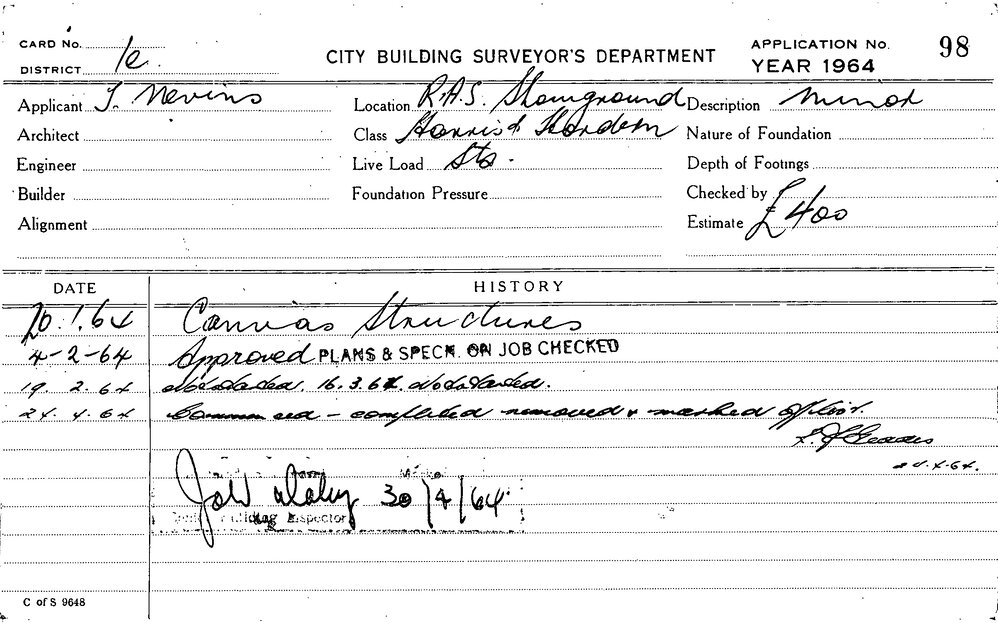 CARD No.
DISTRICT 1c
CITY BUILDING SURVEYOR'S DEPARTMENT
APPLICATION No. 98
YEAR 1964
Applicant J. Nevins
Location R.A.S. Showground
Description Minor
Architect
Class
Nature of Foundation
Engineer
Live Load
Depth of Footings
Builder
Foundation Pressure
Checked by
Alignment
Estimate £400
DATE
HISTORY
20.1.64 Canvas Structures
4-2-64 Approved PLANS & SPECN. ON JOB CHECKED
19.2.64 Not started. 16.3.64. Not started.
24.4.64 Commenced - completed removed & marked off list.
24.4.64.
30/4/64
Building Inspector
C of S 9648